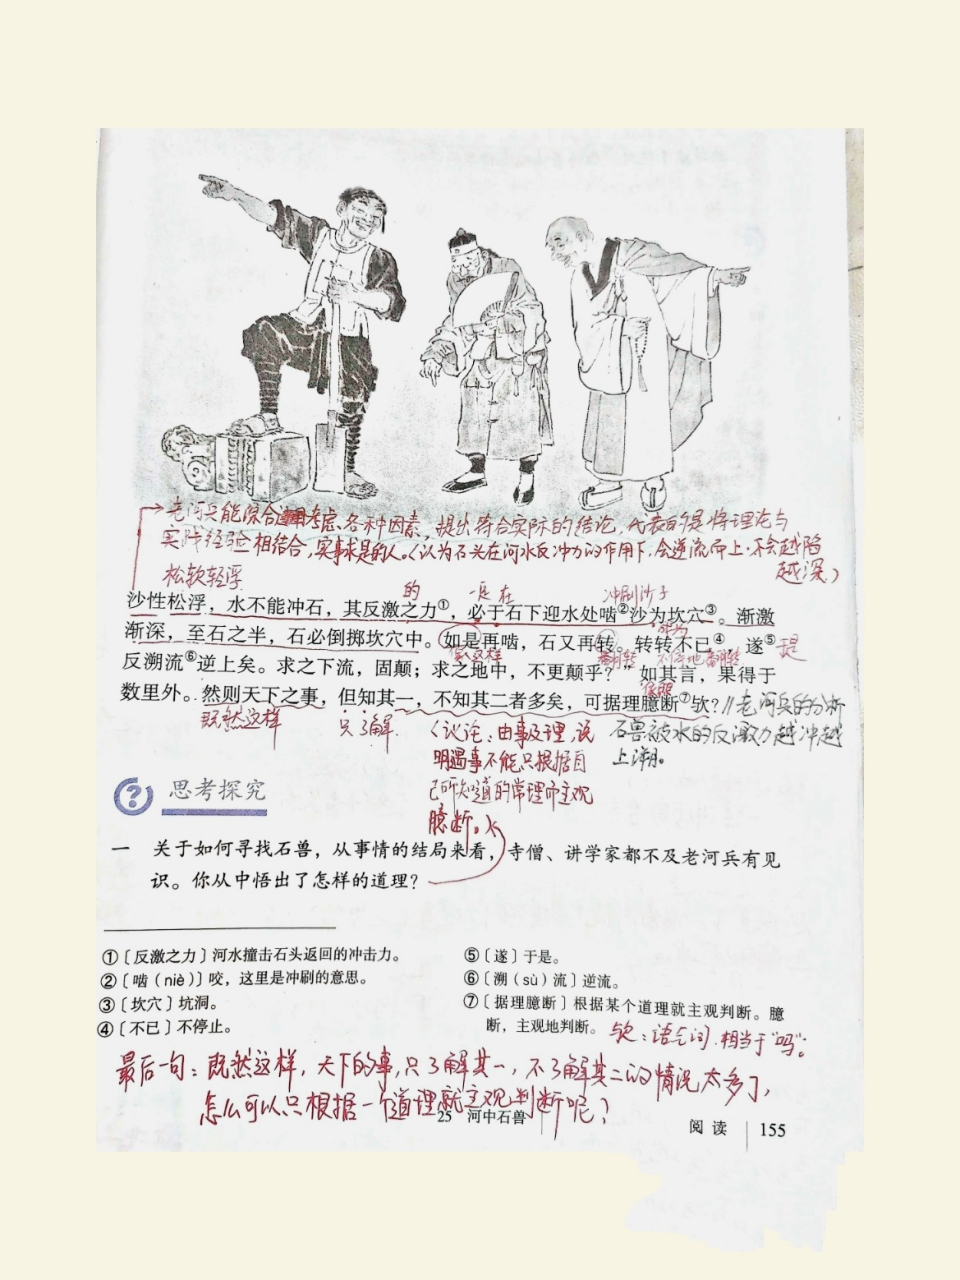 老河兵能综合考虑各种因素，提出符合实际的结论，代表的是将理论与
实践经验相结合，实事求是的人。（认为石兽在河水反冲力的作用下，会逆流而上，不会越陷
越深。）
松软轻浮
的
一定在
冲刷沙子
沙性松浮，水不能冲石，其反激之力①，必于石下迎水处啮②沙为坎穴③。渐激
渐深，至石之半，石必倒掷坎穴中。如是再啮，石又再转，转转不已④，遂⑤
像这样
翻转
不停地翻转
于是
反溯流⑥逆上矣。求之下流，固颠；求之地中，不更颠乎？”如其言，果得于
依照
数里外。然则天下之事，但知其一，不知其二者多矣，可据理臆断⑦欤？//老河兵的分析
既然这样
只了解
（议论：由事及理，说
明遇事不能只根据自
己所知道的常理而主观
臆断。）
石兽被水的反激力越冲越
上溯。
思考探究
一 关于如何寻找石兽，从事情的结局来看，寺僧、讲学家都不及老河兵有见
识。你从中悟出了怎样的道理？
①〔反激之力〕河水撞击石头返回的冲击力。
②〔啮（niè）〕咬，这里是冲刷的意思。
③〔坎穴〕坑洞。
④〔不已〕不停止。
⑤〔遂〕于是。
⑥〔溯（sù）流〕逆流。
⑦〔据理臆断〕根据某个道理就主观判断。臆
断，主观地判断。
欤：语气词，相当于“吗”。
最后一句：既然这样，天下的事，只了解其一，不了解其二的情况太多了，
怎么可以只根据一个道理就主观判断呢？
25 河中石兽
阅读 155